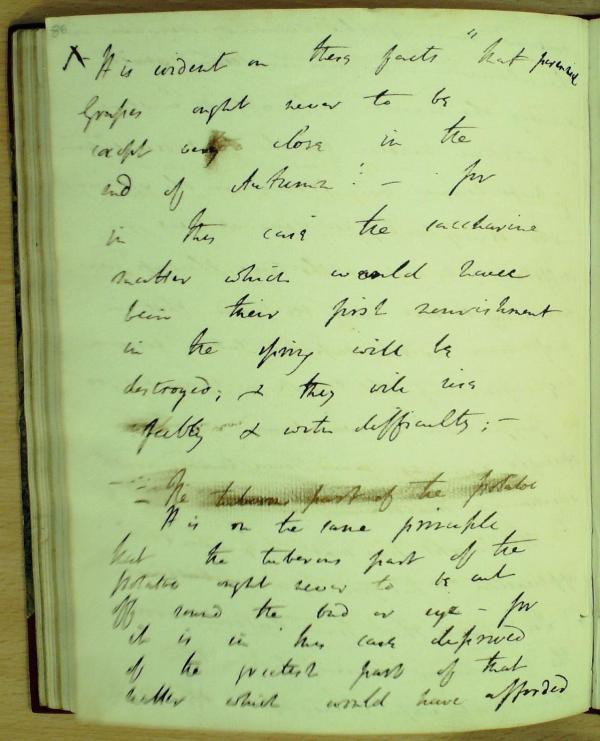 86
X It is evident on these facts "that perennial
Grasses ought never to be
except very close in the
end of Autumn" – for
in this case the saccharine
matter which would have
been their first nourishment
in the spring will be
destroyed; & they will rise
feebly & with difficulty; –
– The tuberous part of the potatoe
It is on the same principle
that the tuberous part of the
potatoe ought never to be cut
off round the bud or eye – for
it is in this case deprived
of the greatest part of that
matter which would have afforded